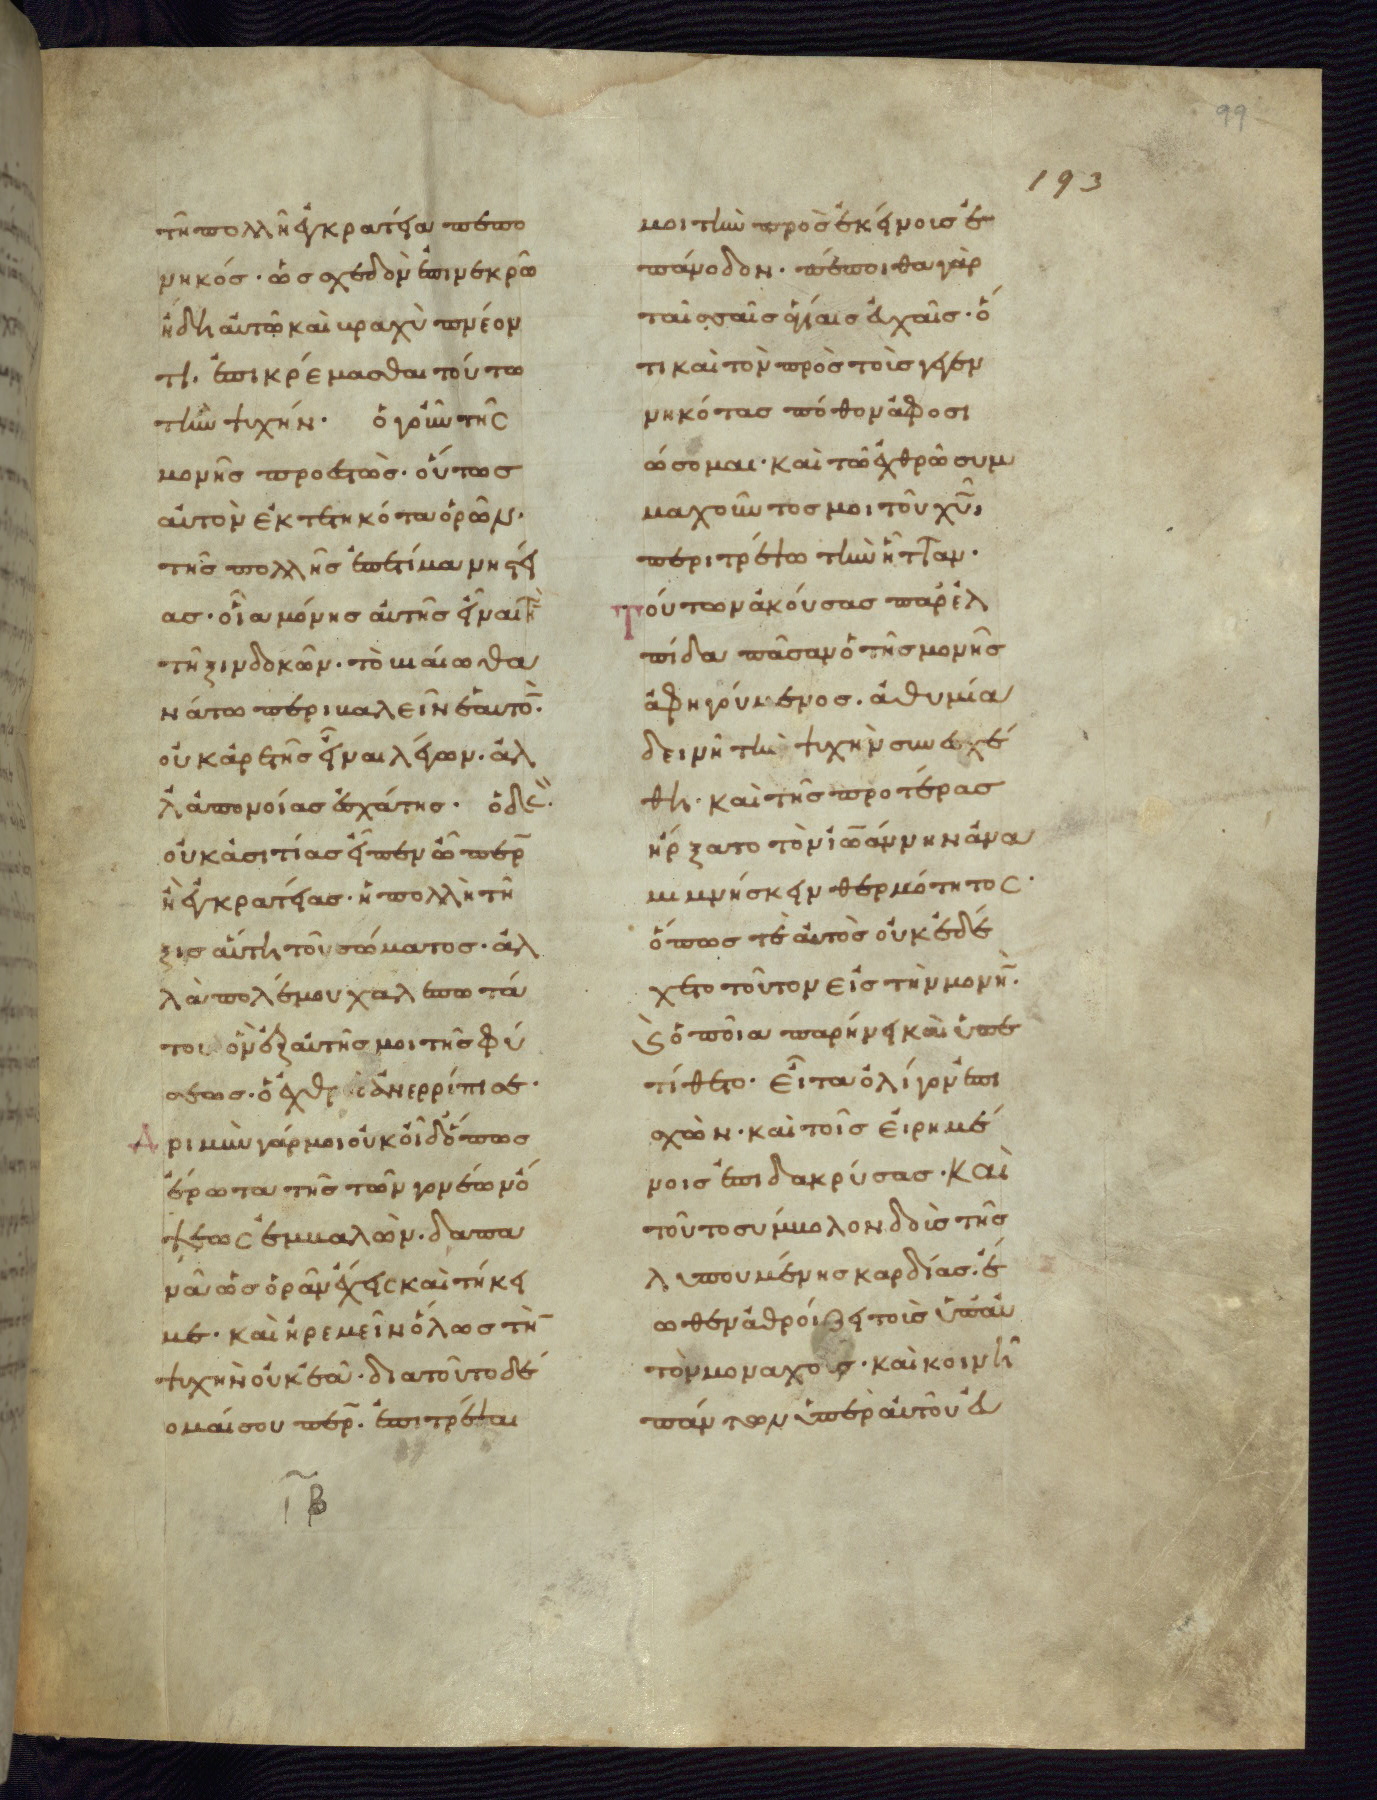 99
193
τῆ πολλῆ ἐγκρατεία πεπο
νηκός· ὡς σχεδὸν ἐπὶ νεκρῶ
ἤδη αὐτῶ καὶ βραχὺ πνέον
τι, ἐπικρέμασθαι τούτω
τὴν ψυχήν· ὁ γοῦν τῆς
μονῆς προεστὼς· οὕτως
αὐτὸν ἐκτετηκότα ὁρῶν·
τῆς πολλῆς ἐπετίμα νηστεί
ας· οἷα μόνης αὐτῆς εἶναι τὴν
τῆξιν δοκῶν· τὸ βιαίω θα
νάτω περιβαλεῖν ἑαυτὸν·
οὐκ ἀρετῆς εἶναι λέγων· ἀλ
λ' ἀπονοίας ἐσχάτης· ὁ δὲ·
οὐκ ἀσιτίας εἶπεν ὦ περ
ἢ ἐγκρατείας· ἡ πολλὴ τῆ
ξις αὕτη τοῦ σώματος· ἀλ
λὰ πολέμου χαλεπωτά
του ὃν ἐξ αὐτῆς μοι τῆς φύ
σεως· ὁ ἐχθρὸς ἀνερρίπισε·
Δριμὺν γάρ μοι οὐκ οἶδ' ὅπως
ἔρωτα τῆς τῶν γονέων ὄ
ψεως ἐμβαλὼν· δαπα
νᾶ ὡς ὁρᾶν ἔχεις καὶ τήκει
με· καὶ ἠρεμεῖν ὅλως τὴν
ψυχὴν οὐκ ἐᾶ· διατοῦτο δέ
ομαί σου περ· ἐπιτρέψαι
ιβ
μοι τὴν πρὸς ἐκείνοις ἐ
πάνοδον· πέποιθα γὰρ
ταῖς σαῖς ἁγίαις εὐχαῖς· ὅ
τι καὶ τὸν πρὸς τοὺς γεγεν
νηκότας πόθον ἀφοσι
ώσομαι· καὶ τῶ ἐχθρῶ συμ
μαχοῦντός μοι τοῦ χυ,
περιτρέψω τὴν ἧτταν·
Τούτων ἀκούσας παρ' ἐλ
πίδα πᾶσαν ὁ τῆς μονῆς
ἀφηγούμενος· ἀθυμία
δεινῆ τὴν ψυχὴν συνεσχέ
θη· καὶ τῆς προτέρας
ἤρξατο τὸν ἰωάννην ἀνα
μιμνήσκειν θερμότητος·
ὅπως τὲ αὐτὸς οὐκ ἐδέ
χετο τοῦτον εἰς τὴν μονὴν·
καὶ ὁποῖα παρήνει καὶ ὑπε
τίθετο· εἶτα ὀλίγον ἐπι
σχὼν· καὶ τοῖς εἰρημέ
νοις ἐπιδακρύσας· καὶ
τοῦτο σύμβολον δοὺς τῆς
λυπουμένης καρδίας· ἕ
ωθεν ἀθροίζει τοὺς ὑπ' αὐ
τὸν μοναχοὺς· καὶ κοινὴ
πάντων ὑπὲρ αὐτοῦ εὐ